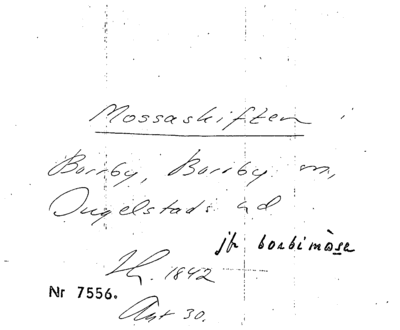 Mossaskiften i
Borrby, Borrby sn,
Ingelstads hd
jfr borbimòse
Lm 1842
Nr 7556.
Akt 30.